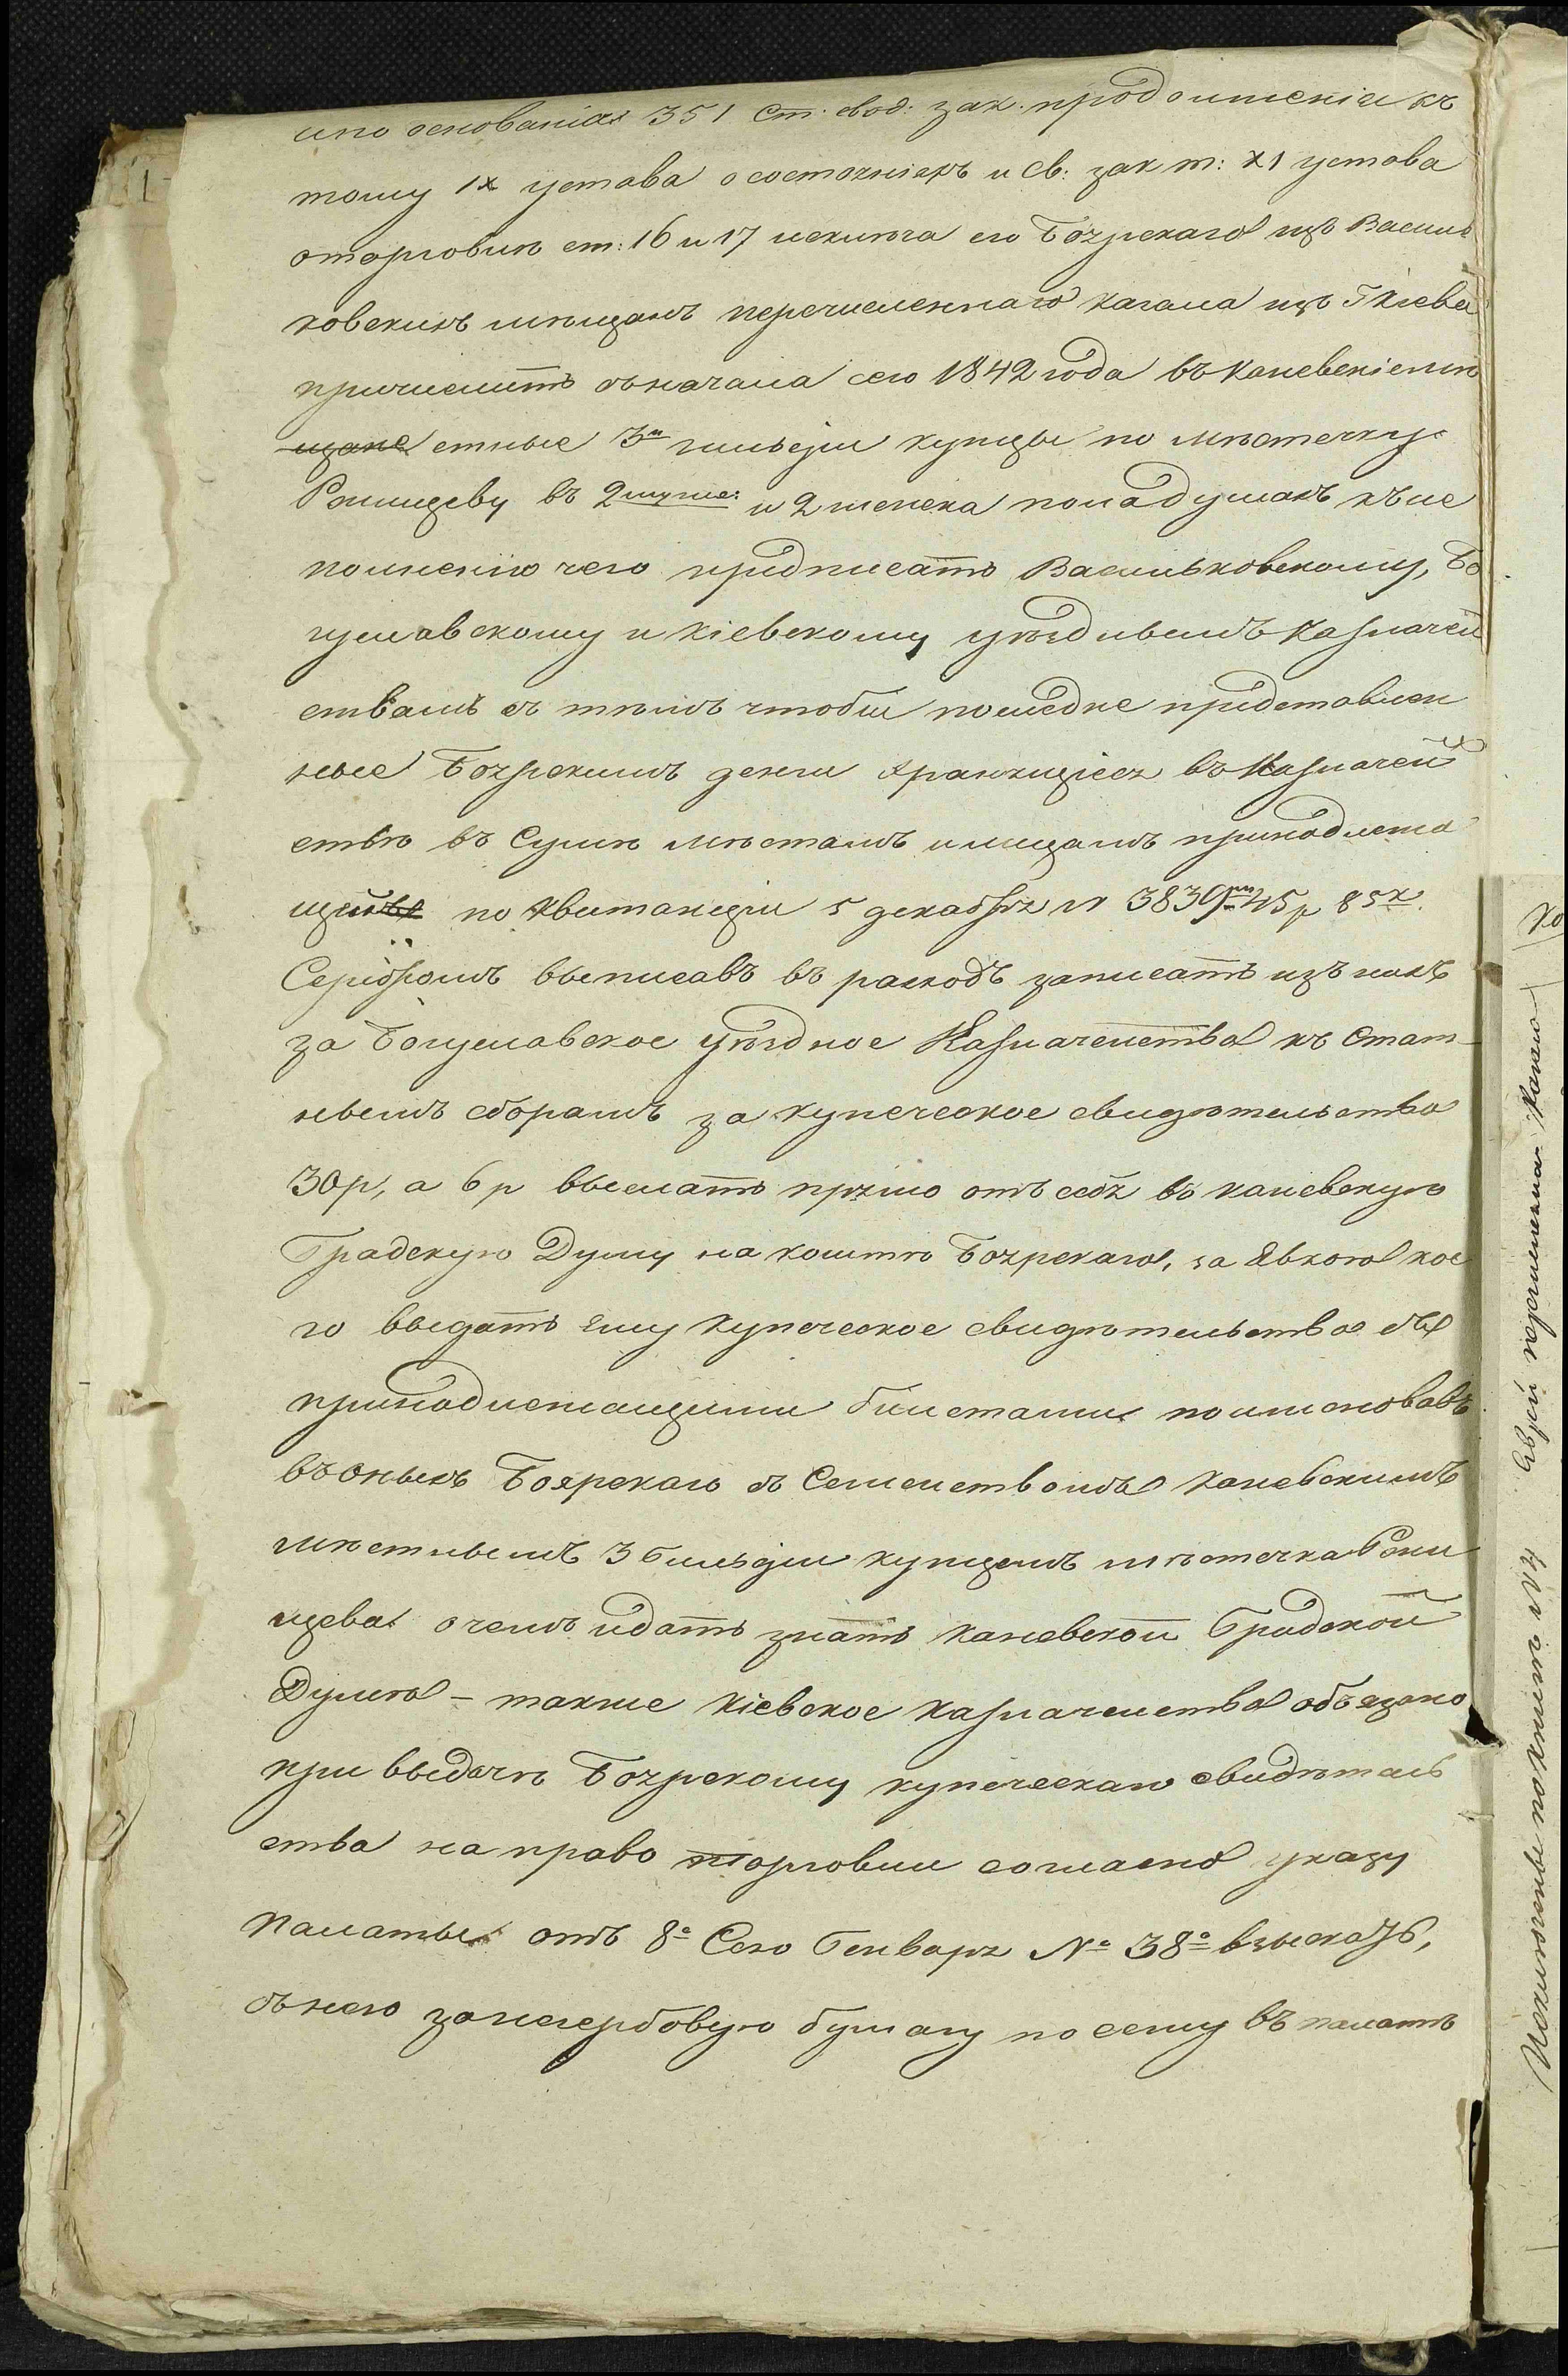 ипо основаніи 351 ст: свод: зак: продолженія къ
тому IX устава осостояніяхъ и св: зак т: XI устава
оторговли ст: 16 и 17 исключа его Боярскаго изъ Василь
ковскихъ мѣщанъ перечисленнаго кагала изъ Гкіева
причислить сначала сего 1842 года въ Каневскіе мѣ
щане стные 3й гильдіи купцы по мѣстечку
Ржищеву въ 2 муже: и 2 женска пола душахъ къ ис
полненію чего предписать Васильковскому, Бо
гуславскому и Кіевскому уѣзднымъ Казначей
ствамъ съ тѣмъ чтобы последнѣ представлен
ные Боярскимъ денги хранящіеся въ Казначей
ствѣ въ Сумѣ мѣстамъ илицамъ принадлежа
щихъ по квитанціи 5 декабря № 3839 45 р 85 к
Серебромъ выписавъ въ расходъ записать изъ нихъ
за Богуславское уѣздное Казначейство къ Стат
нымъ сборамъ за купеческое свидѣтельство
30 р, а 6 р выслать прямо отъ себя въ каневскую
Градскую Думу на кошть Боярскаго, за явкою кое
го выдать ему купеческое свидѣтельство съ
принадлежащими билетами поименовавъ
въ оныхъ Боярскаго съ Семействомъ Каневскимъ
мѣстнымъ 3 Гильдіи купцомъ мѣстечка Ржи
щева очемъ идать знать Каневской Градской
Думѣ – также Кіевское Казначейство обязано
при выдачѣ Боярскому купеческаго свидѣтель
ства на право торговли согласно указу
Палаты отъ 8го Сего Генваря № 38го взыскать,
снего занегербовую бумагу по сему въ палатѣ